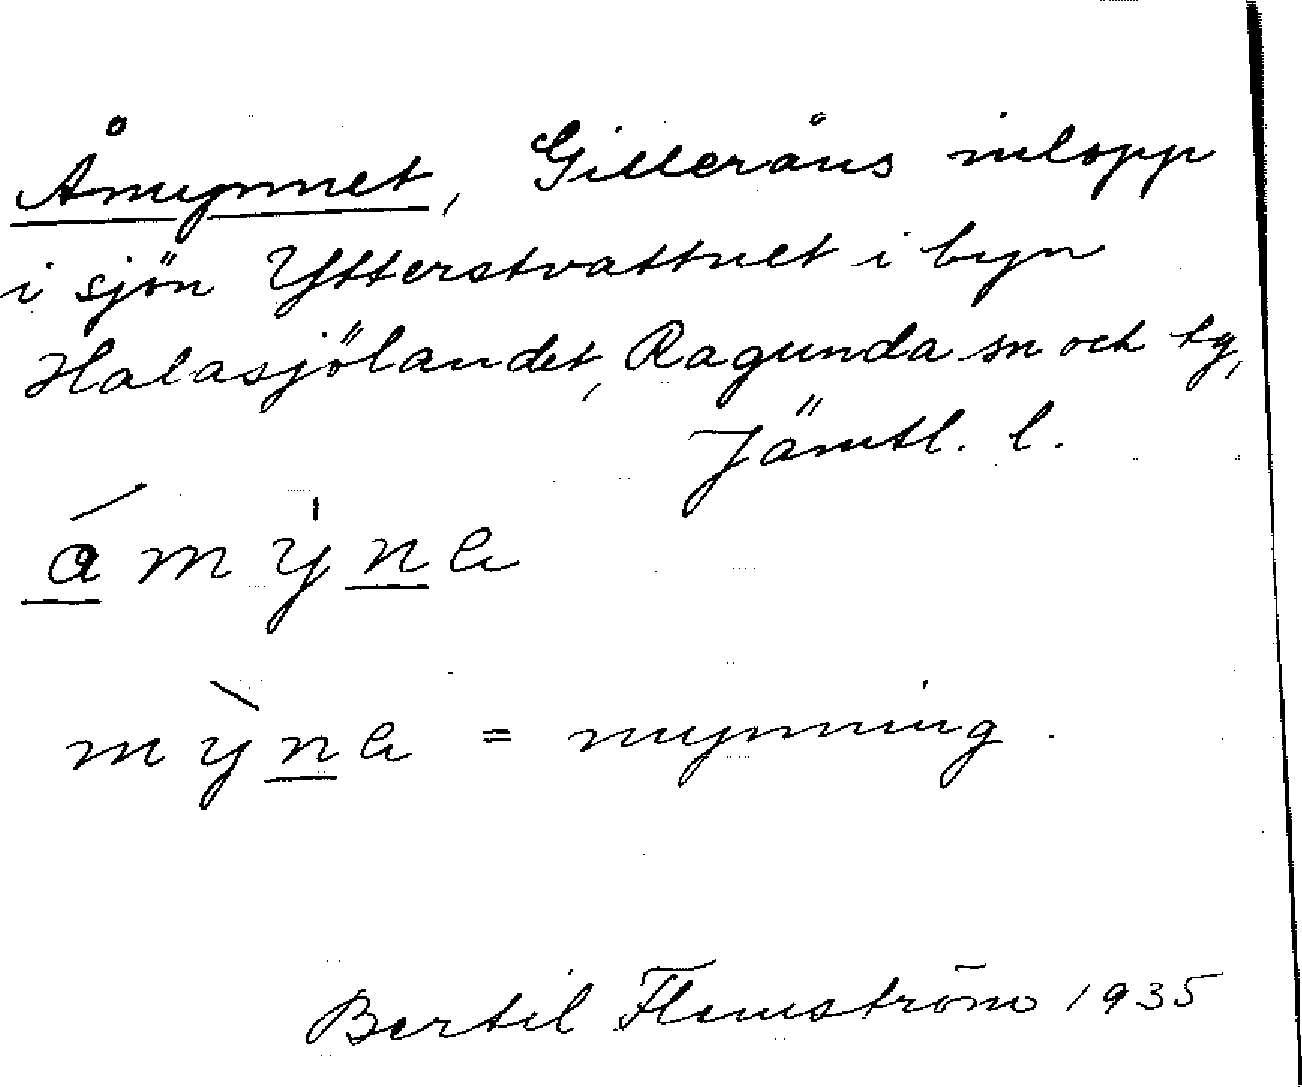 Åmynnet, Gilleråns inlopp
i sjön Ytterstvattnet i byn
Halasjölandet, Ragunda sn och tg,
Jämtl. l.
mỳna = mynning.
Bertil Flemström 1935